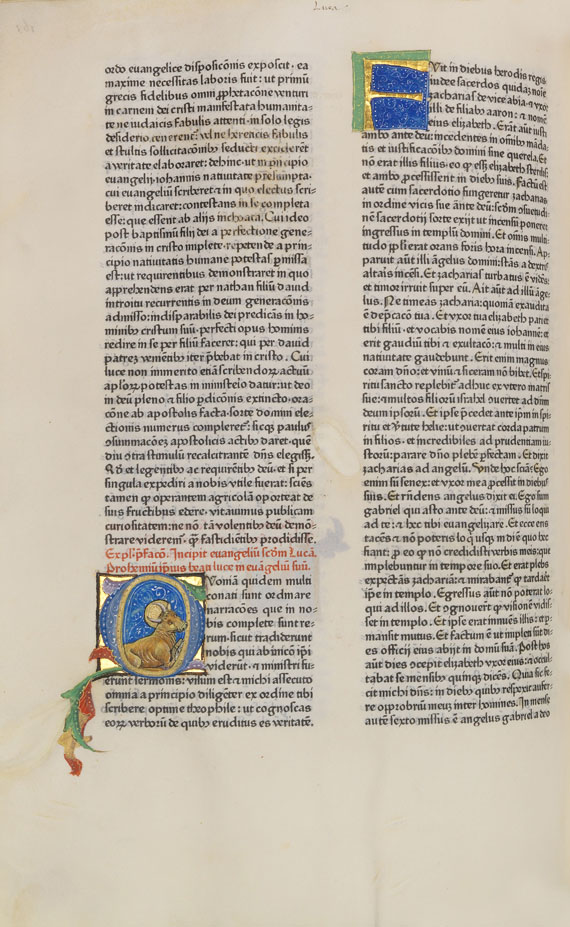 Luca
ordo euangelice disposicõnis exposcit · ea
maxime necessitas laboris fuit : ut primũ
grecis fidelibus omni ꝓphetacõne venturi
in carnem dei cristi manifestata humanita⸗
te ne iudaicis fabulis attenti · in solo legis
desiderio tenerent᷑ : vel ne hereticis fabulis
et stultis sollicitacõnibꝯ seducti exciderẽt
a veritate elaboraret : dehinc · ut in pͥncipio
euangelij · iohannis natiuitate presumpta ·
cui euangeliũ scriberet · ⁊ in quo electus scri⸗
beret indicaret : contestans in se completa
esse : que essent ab alijs inchoata. Cui ideo
post baptismũ filij dei a perfectione gene⸗
racõnis in cristo implete · repetende a prin⸗
cipio natiuitatis humane potestas ꝑmissa
est : ut requirentibus demonstraret in quo
apprehendens erat per nathan filiũ dauid
introitu recurrentis in deum generacõnis
admisso : indisparabilis dei predicãs in ho⸗
minibꝯ cristum suũ · perfecti opus hominis
redire in se per filiũ faceret : qui per dauid
patrẽ venientibꝯ iter pͥbebat in cristo. Cui
luce non immerito etiã scribendoꝝ actuũ
apl’oꝝ potestas in ministeio datur : ut deo
in deũ pleno ⁊ filio ꝓdicõnis extincto · ora⸗
cõne ab apostolis facta · sorte domini ele⸗
ctionis numerus compleret᷑ : sicqꝫ paulus
ꝯsummacõeꝫ apostolicis actibꝯ daret · quẽ
diu ꝯtra stimulũ recalcitrantẽ dñs elegissꝫ.
Qd̃ et legentibꝯ ac requirẽtibꝯ deũ · et si per
singula expediri a nobis vtile fuerat : sciẽs
tamen ꝙ operantem agricolã oporteat de
suis fructibus edere · vitauimus publicam
curiositatem : ne nõ tã volentibꝯ deũ demõ⸗
strare viderem᷑ · ꝙ fastidiẽtibꝯ prodidisse.
Expl’. p̃facõ. Incipit euangeliũ scđm Lucã.
Prohemiũ ipiꝯ beati luce in euãgeliũ suũ.
QVoniã quidem multi
conati sunt ordinare
narracões que in no⸗
bis complete sunt re⸗
rum · sicut tradiderunt
nobis qui ab inicõ ip̃i
viderũt · ⁊ ministri fu⸗
erunt sermonis : visum est ⁊ michi assecuto
omnia a principio diligẽter ex ordine tibi
scribere optime theophile : ut cognoscas
eoꝝ verboꝝ de quibꝯ eruditus es veritatẽ.
FVit in diebus herodis regis
iudee sacerdos quidaꝫ noĩe
zacharias de vice abia · ⁊ vxor
illi de filiabꝯ aaron : ⁊ nomẽ
eius elizabeth. Erãt aũt iusti
ambo ante deũ : incedentes in omibꝯ mãda⸗
tis et iustificacõibꝯ domini sine querela. Et
nõ erat illis filius : eo ꝙ essꝫ elizabeth sterilis :
et ambo ꝓcessissent in diebꝯ suis. Factũ est
autẽ cum sacerdotio fungeretur zacharias
in ordine vicis sue ante deũ : scđm ꝯsuetudi⸗
nẽ sacerdotij · sorte exijt ut incensũ poneret ·
ingressus in templũ domini. Et om̃is multi⸗
tudo pl’i erat orans foris hora incensi. Ap⸗
paruit aũt illi ãgelus domini : stãs a dextris
altaris incẽsi. Et zacharias turbatus ẽ vidẽs :
et timor irruit super eũ. Ait aũt ad illũ ãge⸗
lus. Ne timeas zacharia : quoniã exaudita
ẽ dep̃cacõ tua. Et vxor tua elizabeth pariet
tibi filiũ · et vocabis nomẽ eius iohannẽ : et
erit gaudiũ tibi ⁊ exultacõ : ⁊ multi in eius
natiuitate gaudebunt. Erit enim magnus
corã dño : et vinũ ⁊ sicerã nõ bibet. Et spi⸗
ritu sancto replebit᷑ adhuc ex vtero matris
sue : ⁊ multos filioꝝ israhel ꝯuertet ad dñm
deum ipsoꝝ. Et ipse p̃cedet ante ip̃m in spi⸗
ritu et ṽtute helie : ut ꝯuertat corda patrum
in filios · et incredibiles ad prudentiam iu⸗
storũ : parare dño plebẽ ꝑfectam. Et dixit
zacharias ad angelũ. Vnde hoc sciã : Ego
enim sũ senex : et vxor mea ꝓcessit in diebus
suis. Et rñdens angelus dixit ei. Ego sum
gabriel qui asto ante deũ : ⁊ missus sũ loqui
ad te : ⁊ hec tibi euangelizare. Et ecce eris
tacẽs ⁊ nõ poteris loqui usqꝫ in diẽ quo hec
fiant : ꝓ eo ꝙ nõ credidisti verbis meis : que
implebuntur in tempore suo. Et erat plebs
expectãs zachariã : ⁊ mirabant᷑ ꝙ tardaret
ip̃e in templo. Egressus aũt nõ poterat lo⸗
qui ad illos. Et ꝯgnouerũt ꝙ visionẽ vidis⸗
set in templo. Et ipse erat innuẽs illis : et ꝑ⸗
mansit mutus. Et factum ẽ ut impleti sũt di⸗
es officij eius abijt in domũ suã. Post hos
aũt dies ꝯcepit elizabeth vxor eius : ⁊ occul⸗
tabat se mensibꝯ quinqꝫ dicẽs. Quia sic fe⸗
cit michi dñs : in diebꝯ quibꝯ respexit aufer⸗
re opprobriũ meuꝫ inter homines. In mense
autẽ sexto missus ẽ angelus gabriel a deo